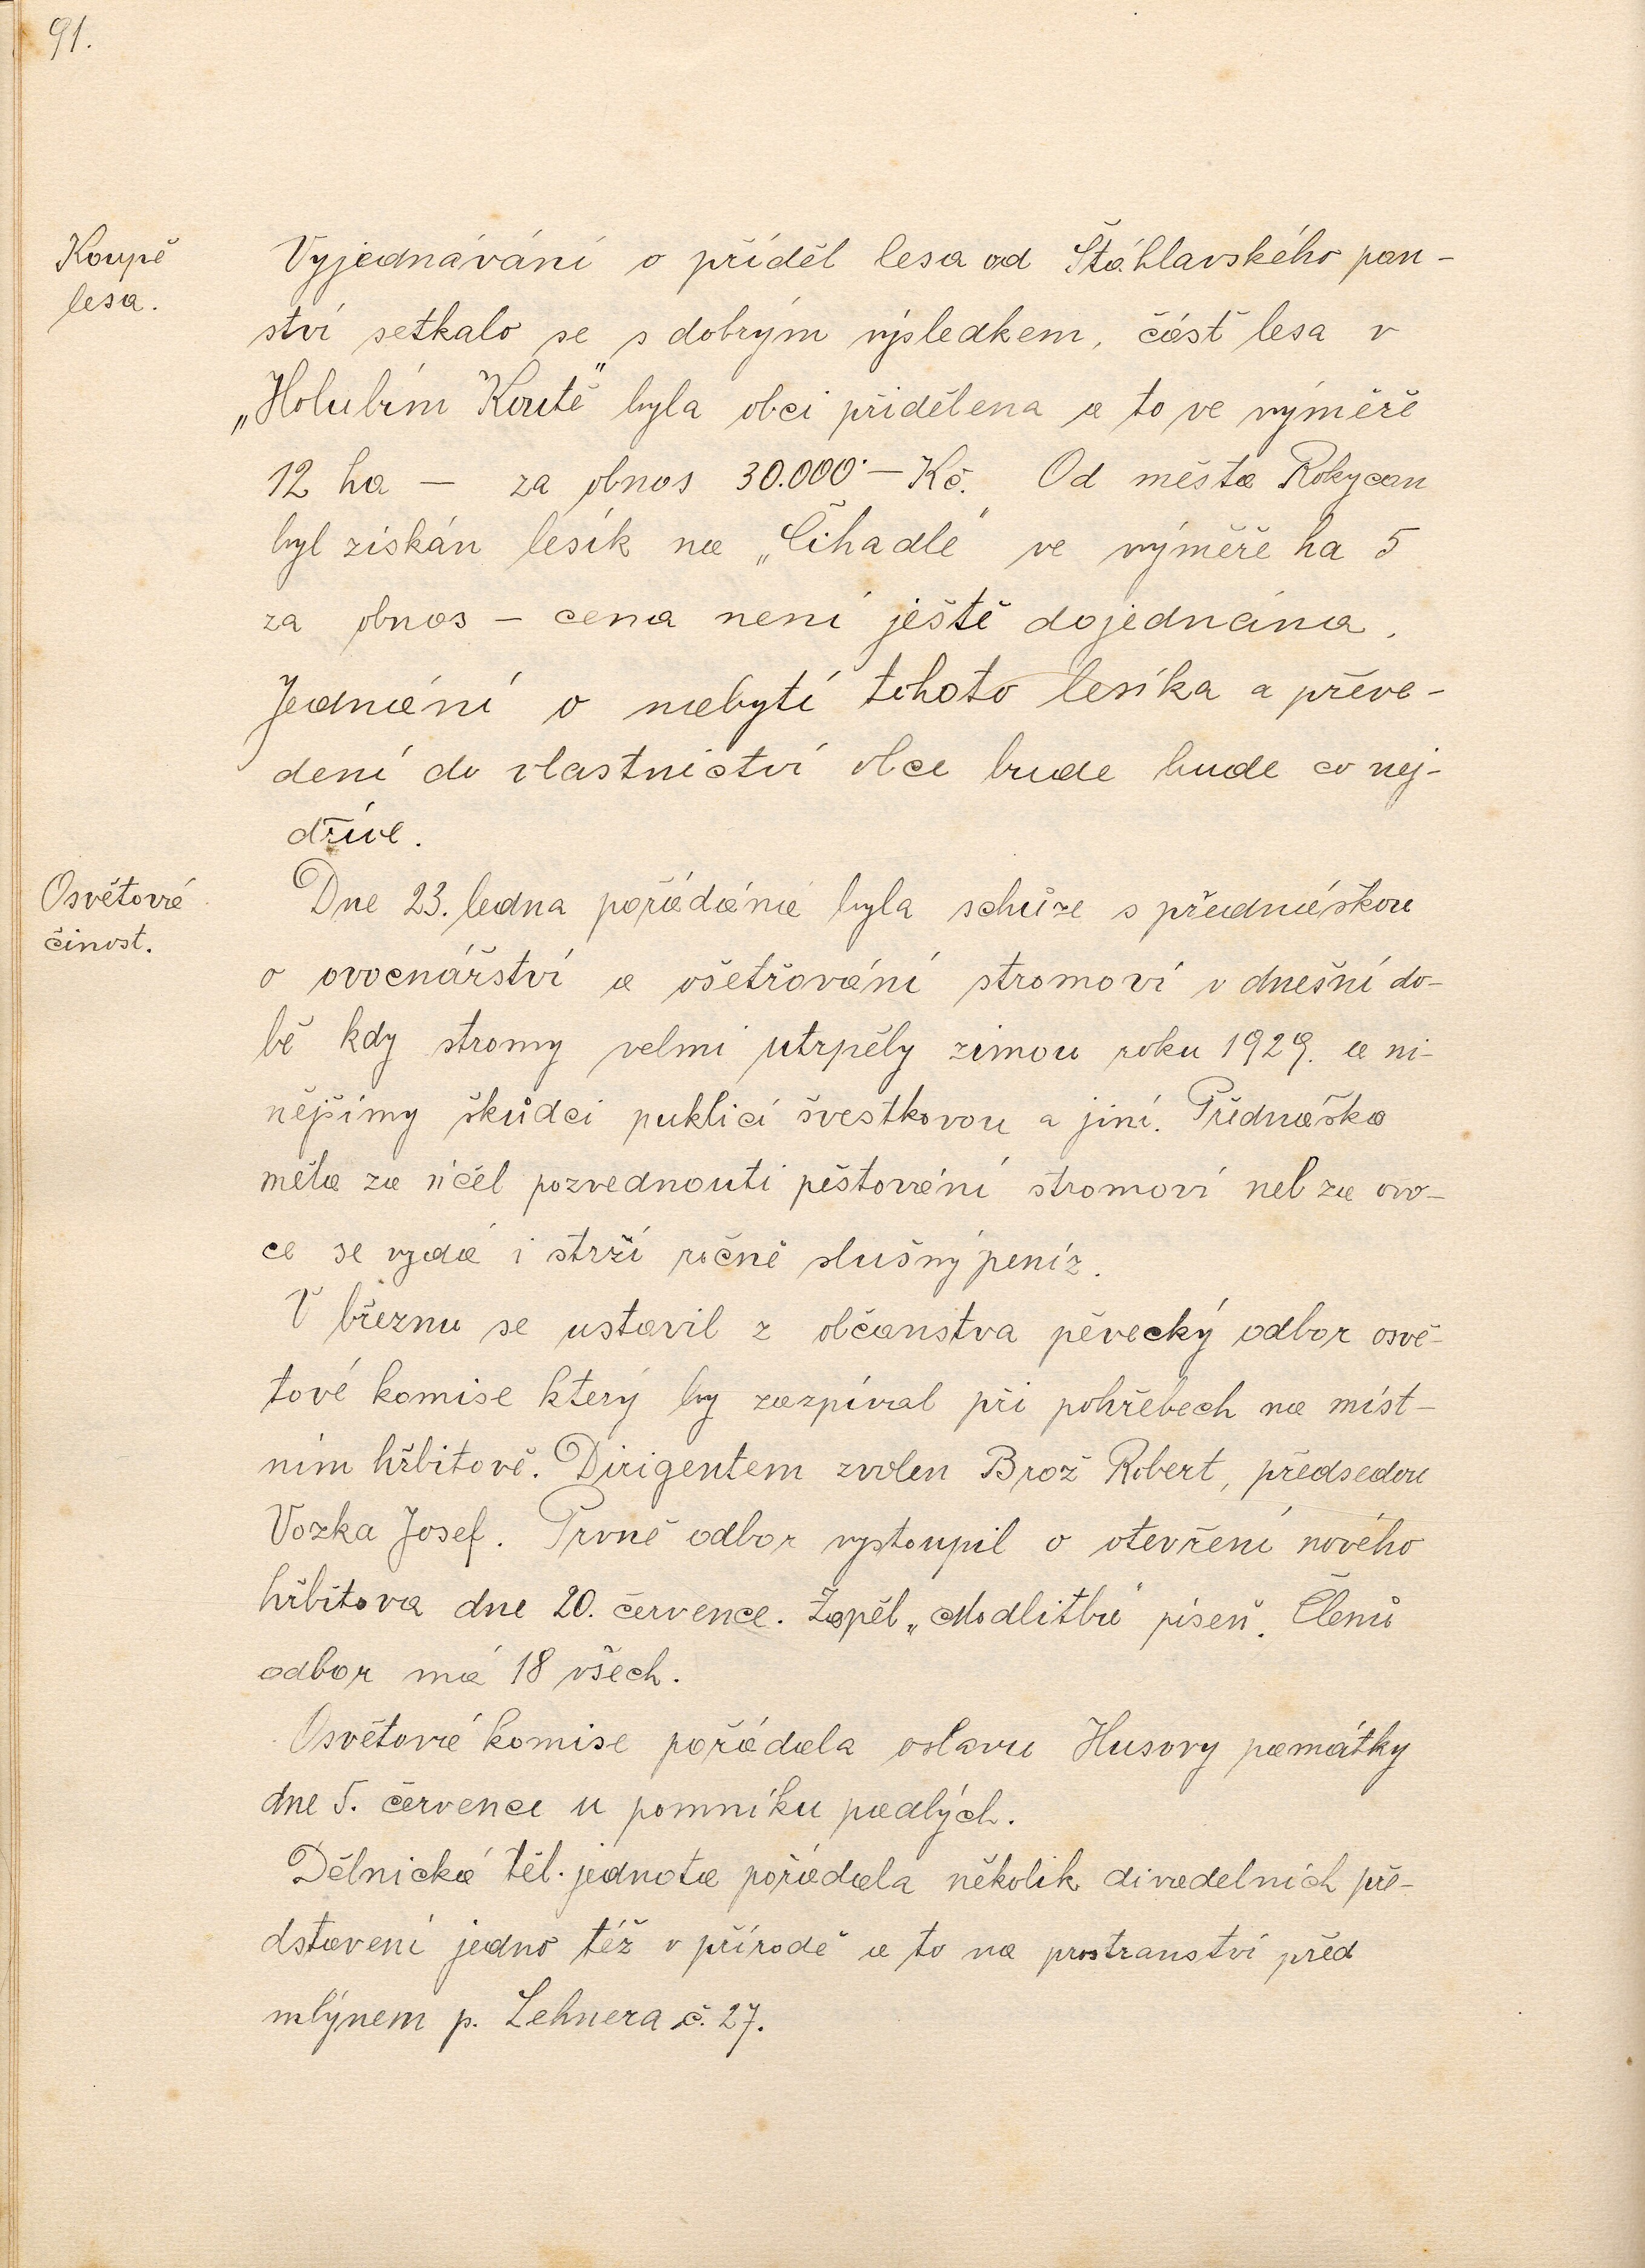 91.
Koupě
lesa.
Vyjednávání o příděl lesa od Štáhlavského pan-
ství setkalo se s dobrým výsledkem, část lesa v
„Holubím Koutě" byla obci přidělena a to ve výměře
12 ha — za obnos 30.000·— Kč. Od města Rokycan
byl získán lesík na „Čihadle" ve výměře ha 5
za obnos – cena není ještě dojednána.
Jednání o nabytí tohoto lesíka a převe-
dení do vlastnictví obce bude bude co nej-
dříve.
Osvětová
činost.
Dne 23. ledna pořádána byla schůze s přednáškou
o ovocnářství a ošetřování stromoví v dnešní do-
bě kdy stromy velmi utrpěly zimou roku 1929. a ni-
nějšímy škůdci puklicí švestkovou a jiní. Přednáška
měla za účel pozvednouti pěstování stromoví neb za ovo-
ce se vydá i strží ročně slušný peníz.
V březnu se ustavil z občanstva pěvecký odbor osvě-
tové komise který by zazpíval při pohřebech na míst-
ním hřbitově. Dirigentem zvolen Brož Robert, předsedou
Vozka Josef. Prvně odbor vystoupil o otevření nového
hřbitova dne 20. července. Zapěl „Modlitbu" píseň. Členů
odbor má 18 všech.
Osvětová komise pořádala oslavu Husovy památky
dne 5. července u pomníku padlých.
Dělnická těl. jednota pořádala několik divadelních pře-
dstavení jedno též v přírodě a to na prostranství před
mlýnem p. Lehnera č. 27.